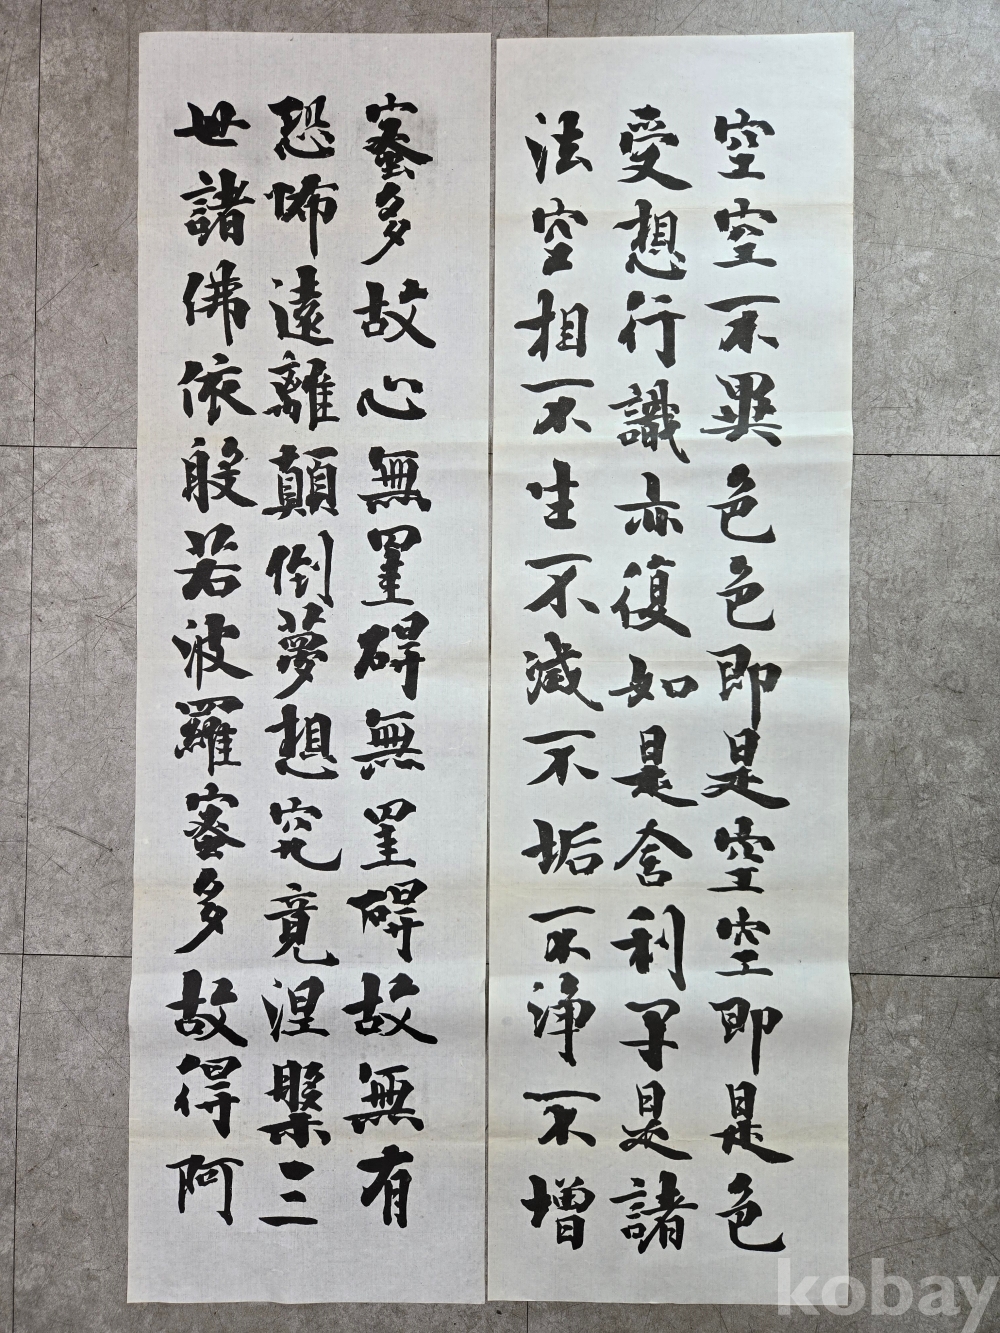 空空不異色色即是空空即是色
受想行識亦復如是舍利子是諸
法空相不生不滅不垢不淨不增
蜜多故心無罣碍無罣碍故無有
恐怖遠離顛倒夢想究竟涅槃三
世諸佛依般若波羅蜜多故得阿
kobay